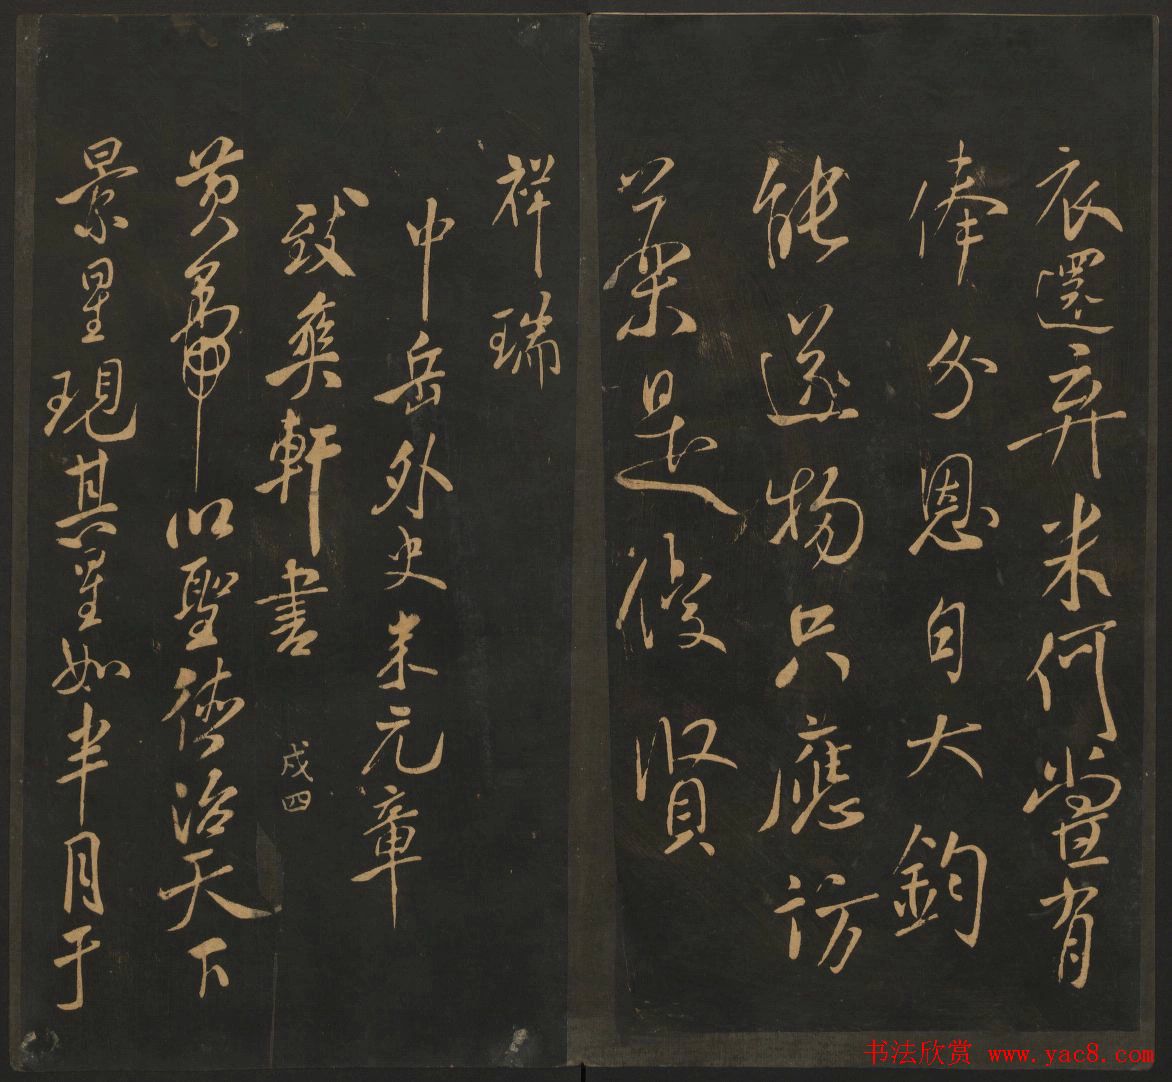 衣還弃米何嘗有
俸分恩自大鈞
能遂物只應訪
藥是後賢
祥瑞
中岳外史米元章
致爽軒書
戌四
黄帝以聖德治天下
景星現其星如半月于
书法欣赏 www.yac8.com